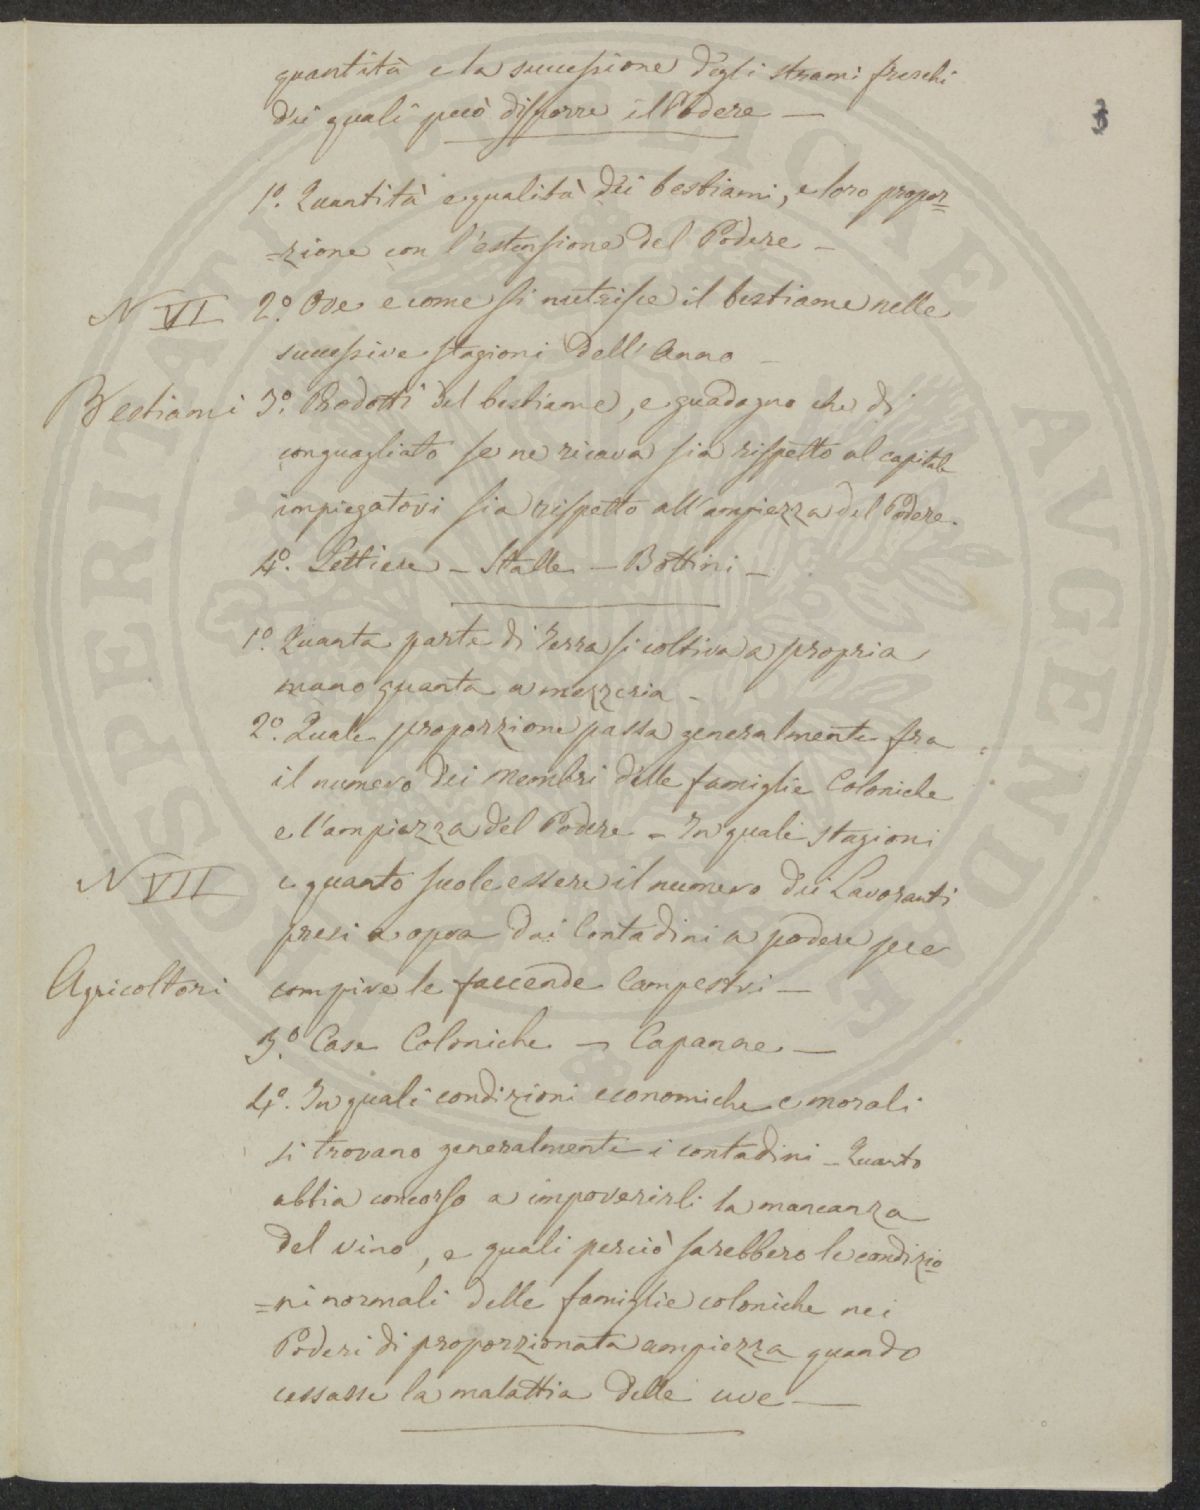 3
quantità e la successione degli strami freschi
dei quali può disporre il Podere —
1.° Quantità e qualità dei bestiami, e loro propor=
=zione con l'estensione del Podere —
N VI
2.° Ove e come si nutrisce il bestiame nelle
successive stagioni dell'Anno —
Bestiami
3.° Prodotti del bestiame, e guadagno che di
conguagliato se ne ricava sia rispetto al capitale
impiegatovi sia rispetto all'ampiezza del Podere.
4.° Lettiere — Stalle — Bottini —
1.° Quanta parte di Terra si coltiva a propria
mano quanta a mezzeria —
2.° Quale proporzione passa generalmente fra
il numero dei Membri delle famiglie Coloniche
e l'ampiezza del Podere — In quali stagioni
N VII
e quanto suole essere il numero dei Lavoranti
presi a opra dai Contadini a podere per
Agricoltori
compire le faccende Campestri —
3.° Case Coloniche — Capanne —
4.° In quali condizioni economiche e morali
si trovano generalmente i contadini — Quanto
abbia concorso a impoverirli la mancanza
del vino, e quali perciò sarebbero le condizio=
=ni normali delle famiglie coloniche nei
Poderi di proporzionata ampiezza quando
cessasse la malattia delle uve —
PROSPERITATI PUBLICAE AUGENDAE